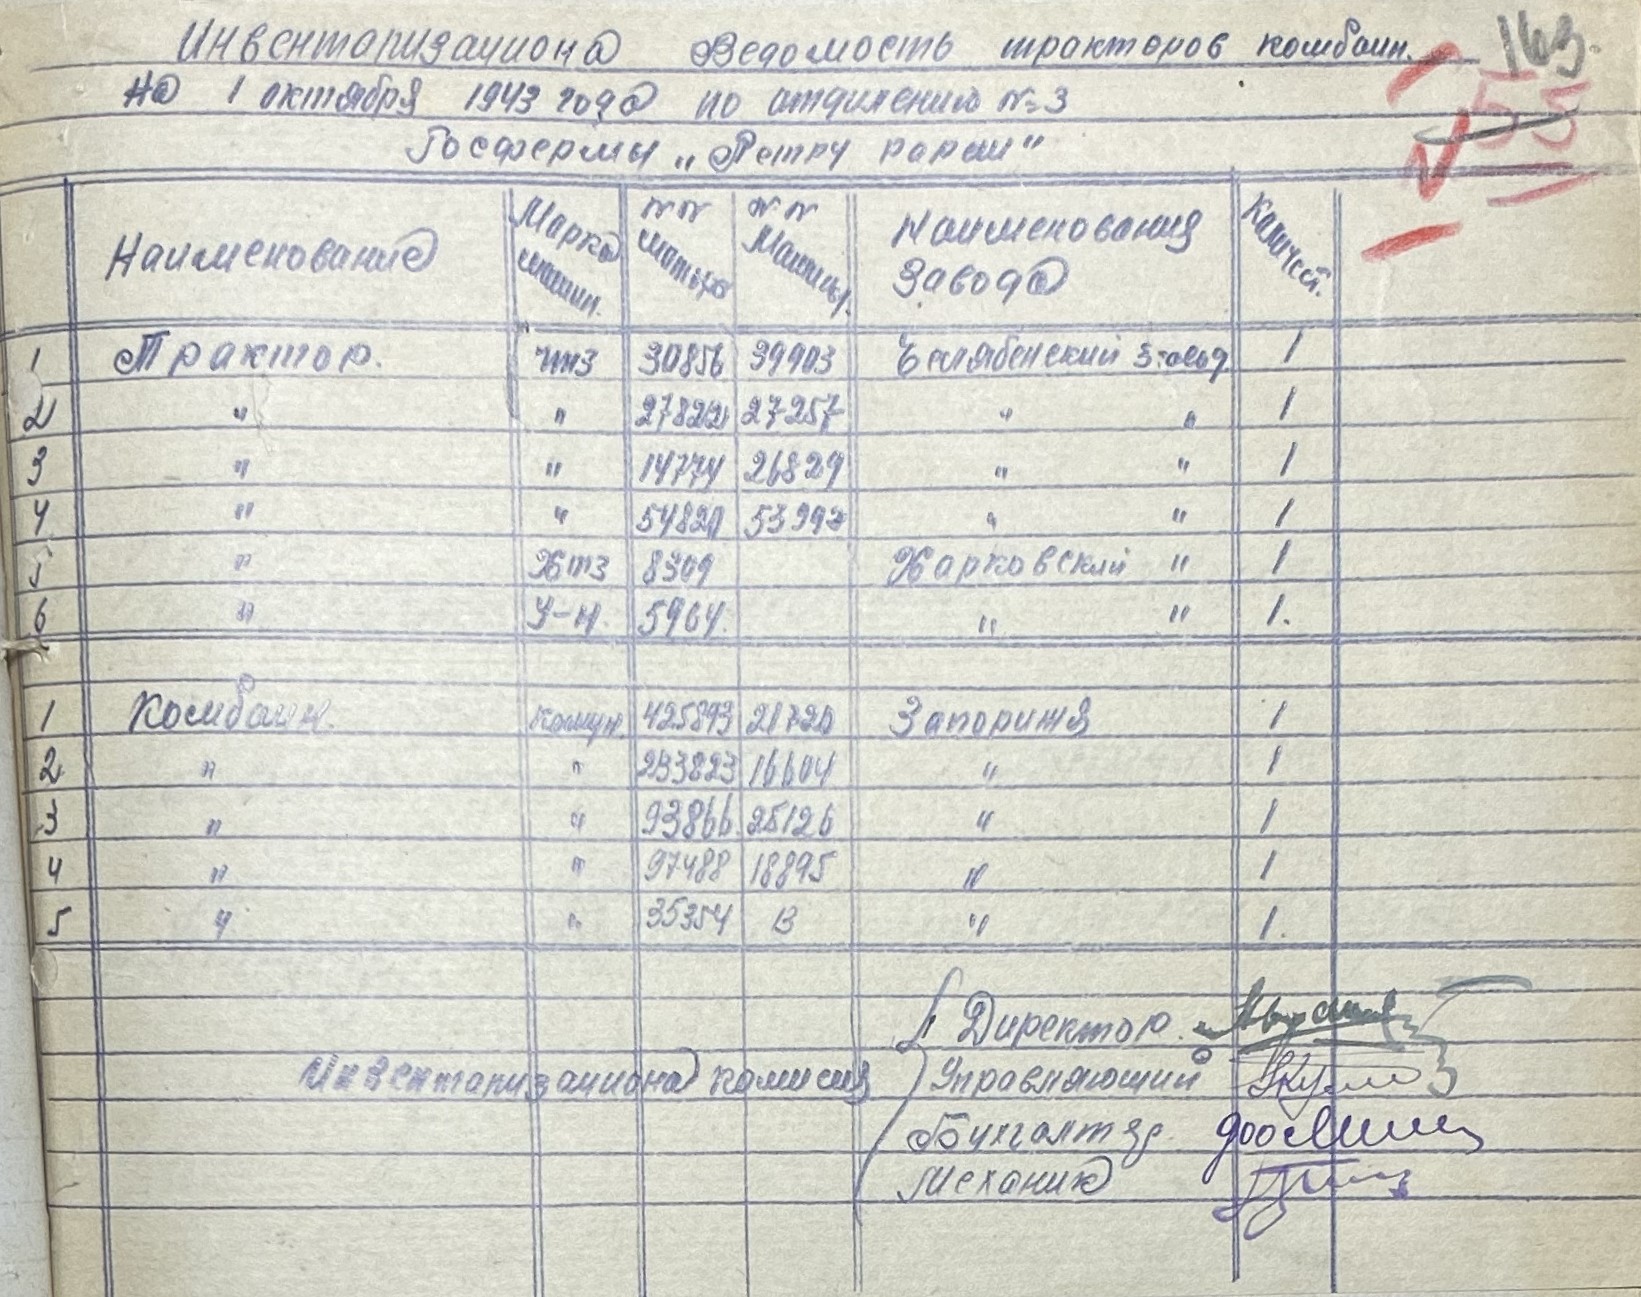 Инвентаризациона Ведомость тракторов комбаин. 163.
На 1 октября 1943 года по отдилению №3 55
Госфермы „Петру рареш"
Наименование Марка машин. №№ мотора №№ Машины. Наименования Завода Количест.
1 Трактор. чтз 30856 39903 Челябенский Завод 1
2 " " 27822 27257 " " 1
3 " " 14774 26829 " " 1
4 " " 54820 53992 " " 1
5 " Хтз 8309 Харковский " 1
6 " У-н. 5964. " " 1.
1 Комбаин. комун. 425893 21720 Запорижя 1
2 " " 233823 16604 " 1
3 " " 93866 25126 " 1
4 " " 97488 18895 " 1
5 " " 35354 В " 1.
Директор.
Инвентаризациона комисия Управляющий
Бухгалтер.
Механик